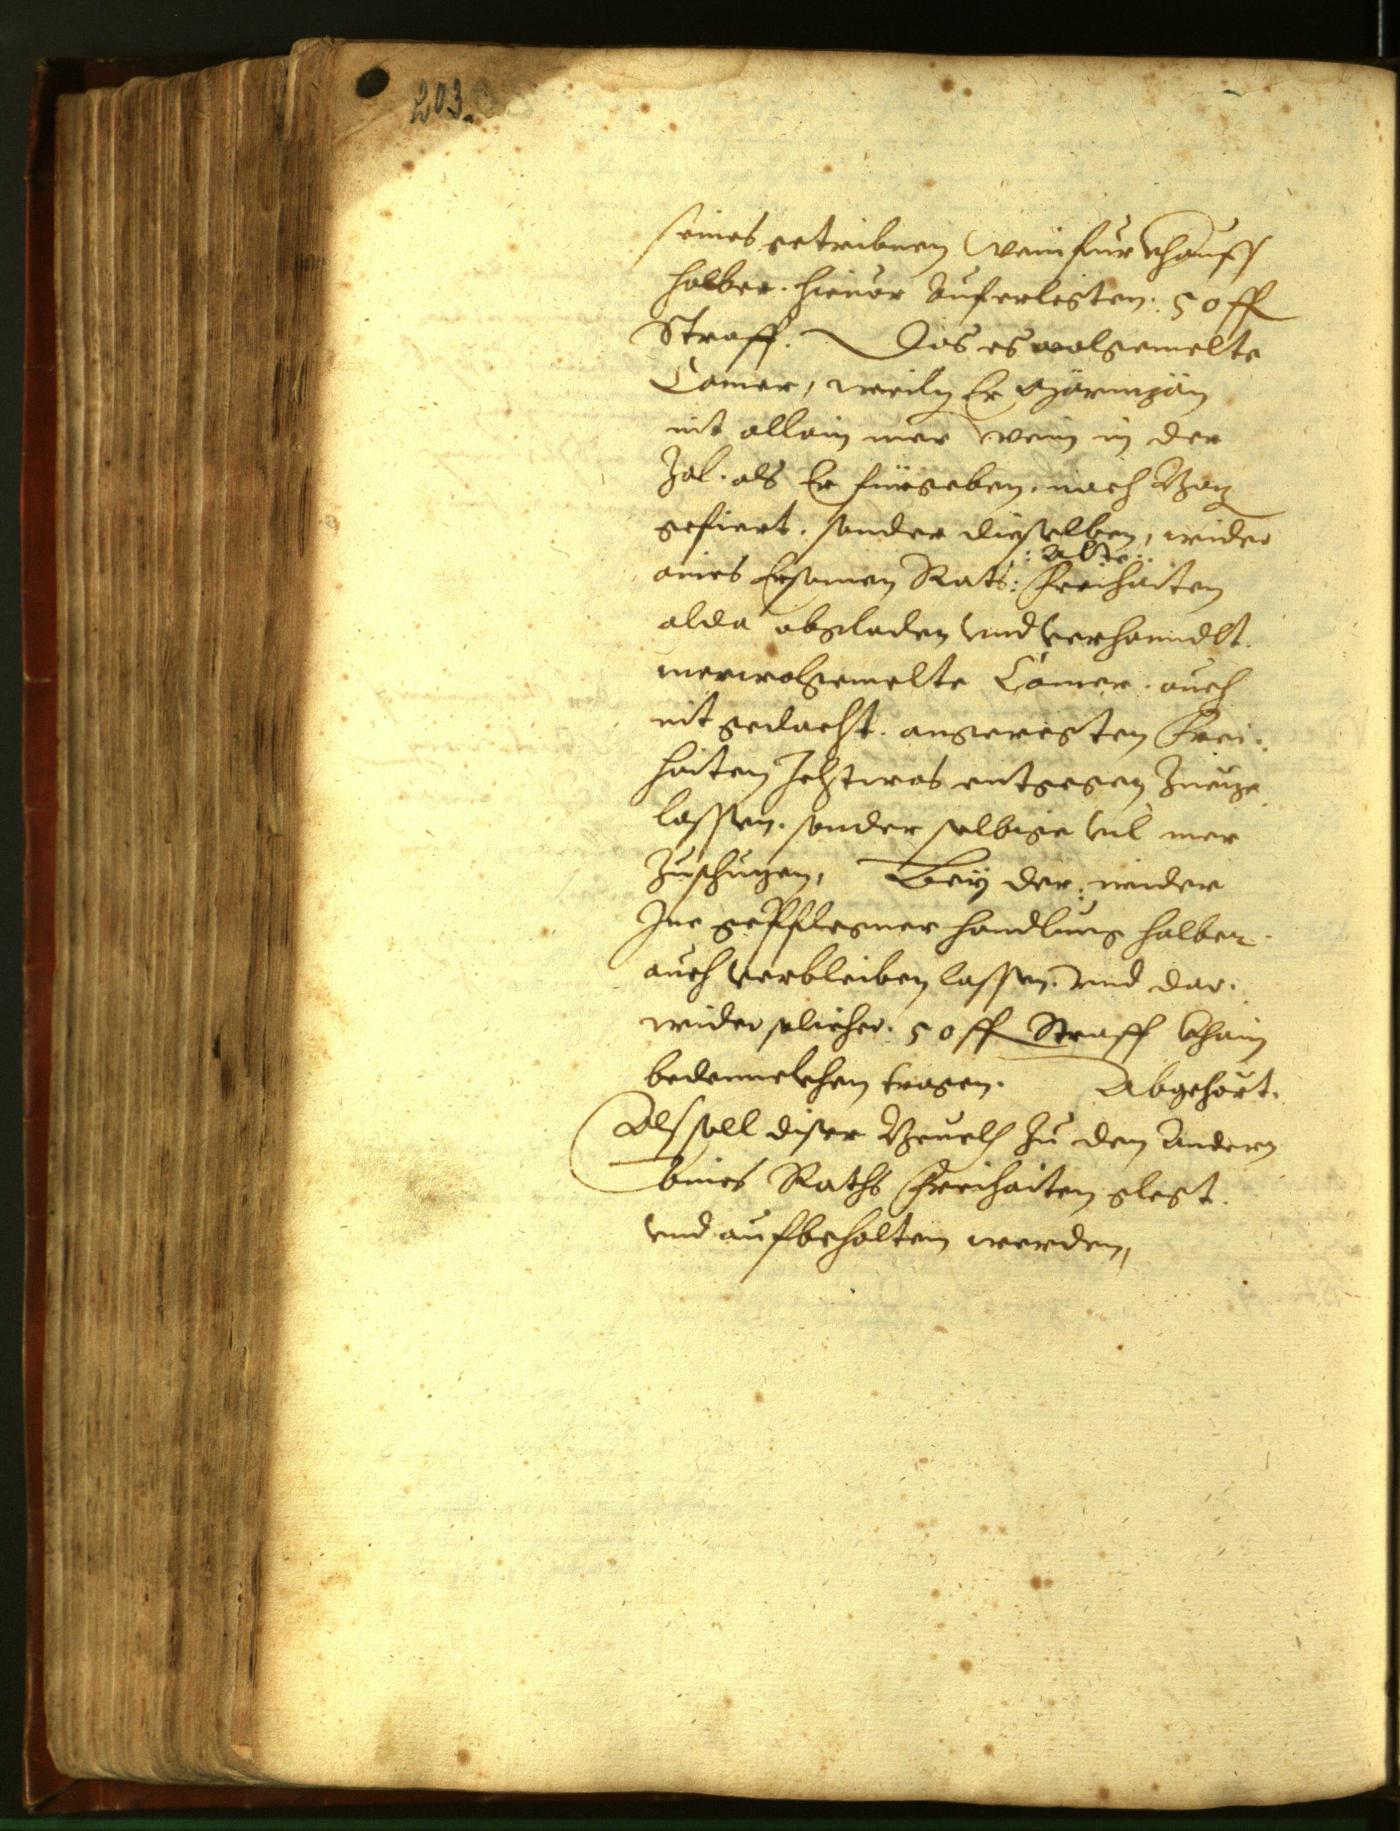 203.
seines getribnen weinfürkhauffs
halber. hieuor Auferlegten: 50 ff
Straff. Das es wolgemelte
Camer, weiln Er
nit allain mer wein in der
Zal. als Er fürgeben, nach
gefiert. sonder dieselben, wider
: Alte :
aines Ersamen Rats: Freihaiten
alda abgeladen vnd verhanndlt.
merwolgemelte Camer. auch
nit gedacht. angeregten Frei:
haiten Ichtwas entgegen
lassen. sonder selbige vil mer
Zuschuzen, Bey der: wider
Ine gepflegner handlung halber
auch verbleiben lassen. vnd dar:
wider 50 ff Straff khain
bedennckhen tragen. Abgehört.
Als soll diser Beuelch Zu den Andern
Eines Raths Freihaiten glegt.
vnd aufbehalten werden,